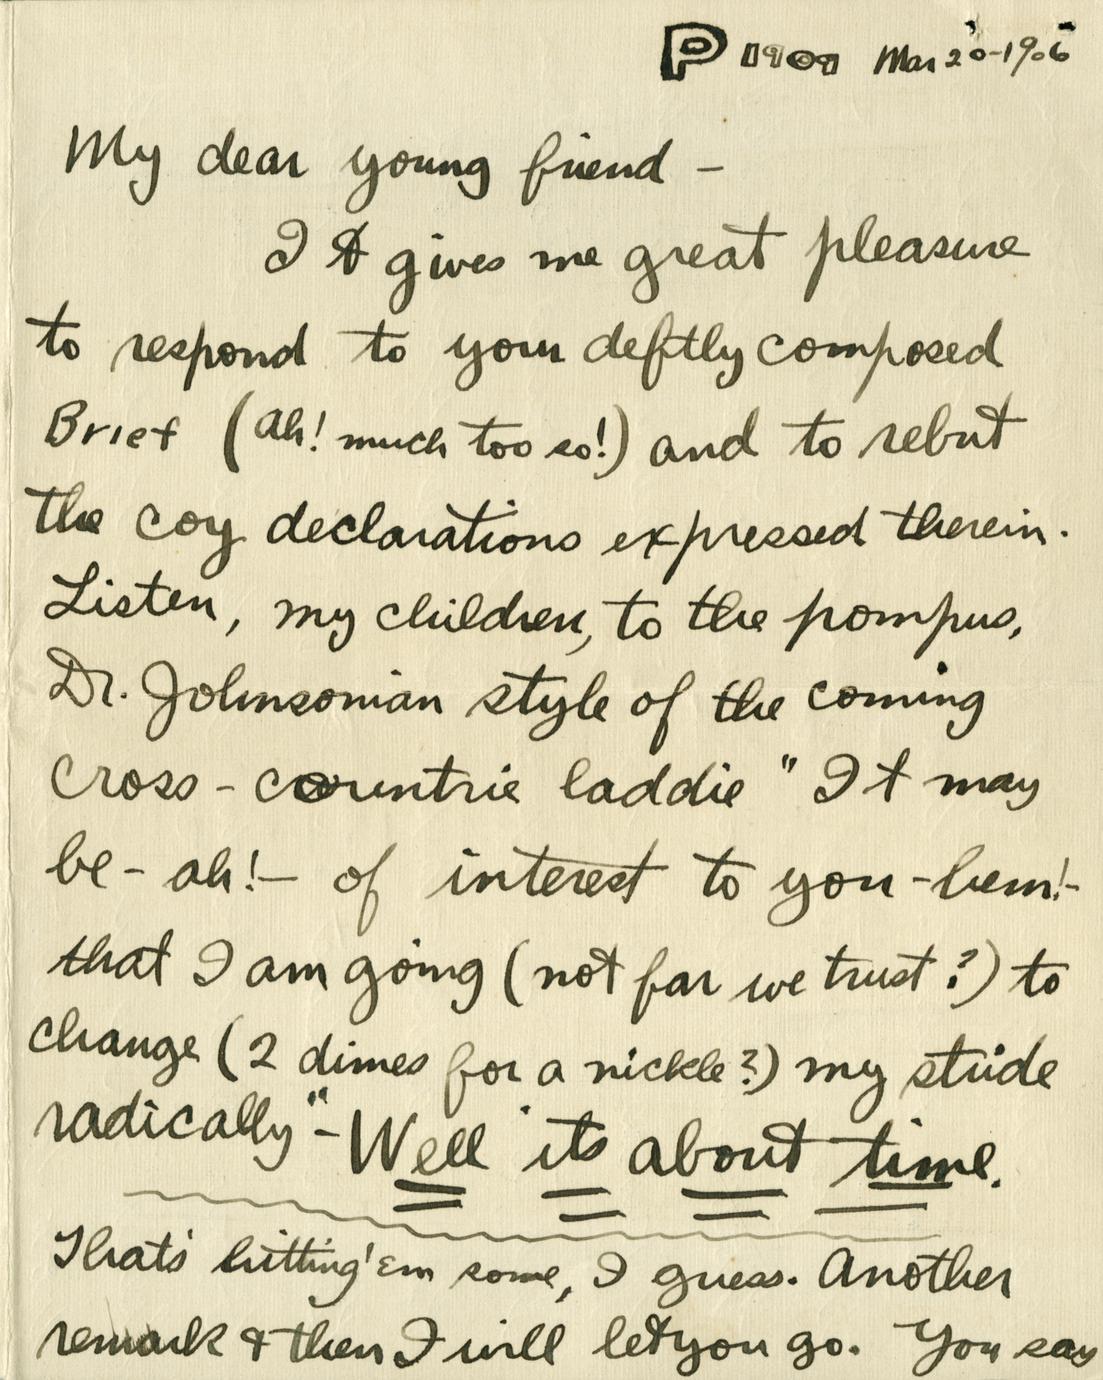 P 1909 Mar 20-1906
My dear young friend -
It gives me great pleasure
to respond to your deftly composed
Brief (ah! much too so!) and to rebut
the coy declarations expressed therein.
Listen, my children, to the pompus,
Dr. Johnsonian style of the coming
cross-countrie laddie "It may
be - ah! - of interest to you - hem! -
that I am going (not far we trust?) to
change (2 dimes for a nickle?) my stride
radically" - Well its about time.
Thats hitting 'em some, I guess. Another
remark & then I will let you go. You say